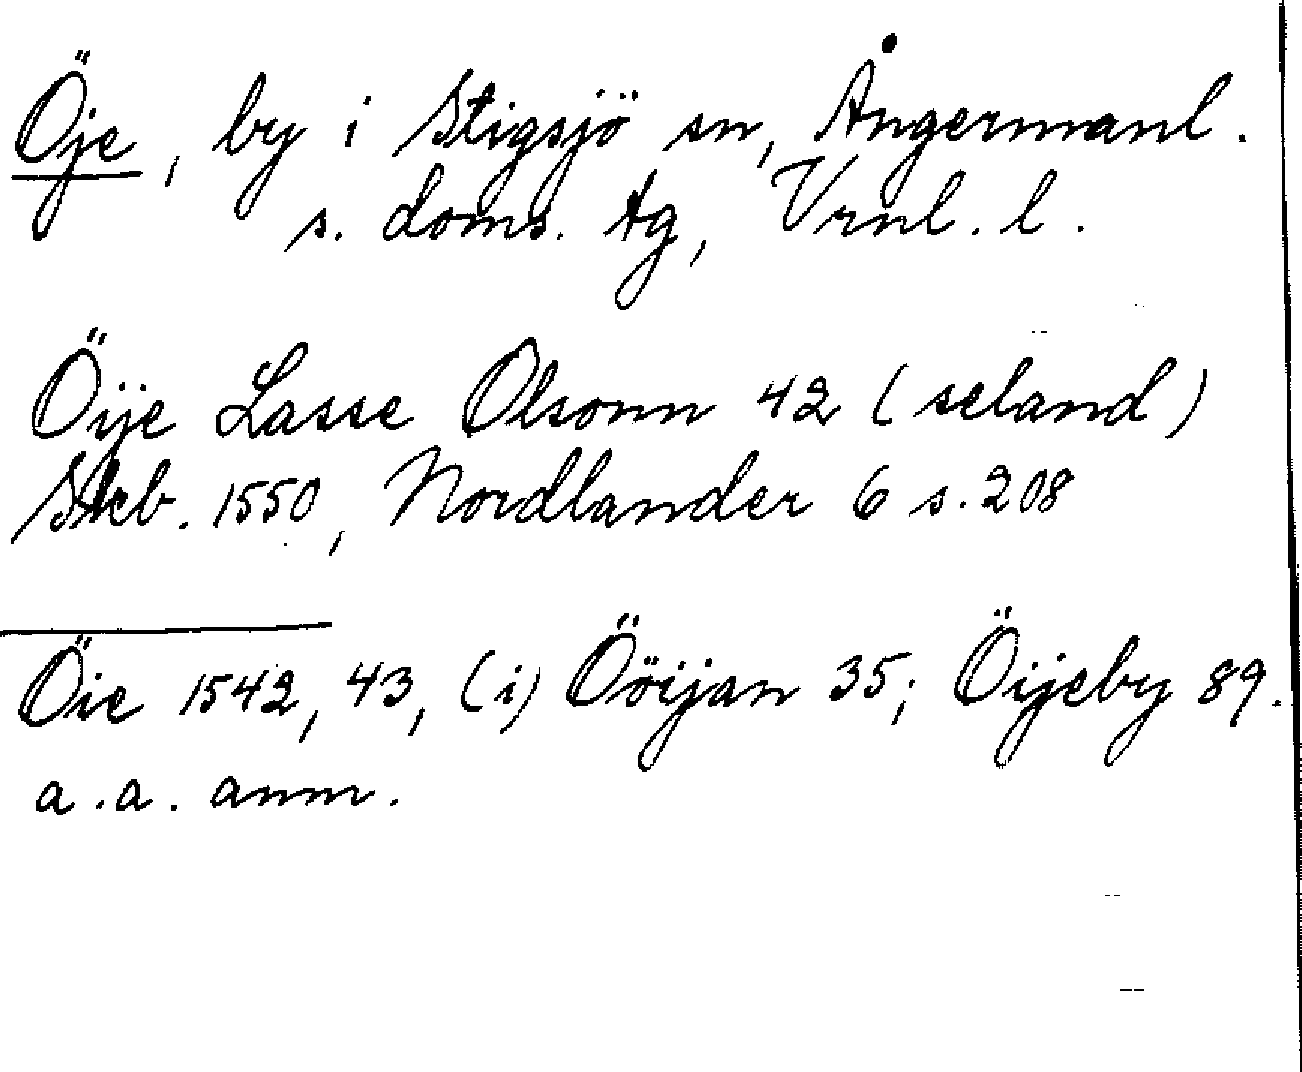 Öje, by i Stigsjö sn, Ångermanl.
s. doms. tg, Vrnl. l.
Öije Lasse Olsonn 42 (seland)
Skb. 1550, Nordlander 6 s. 208
Öie 1542, 43, (i) Ööijan 35; Öijeby 89.
a.a. anm.